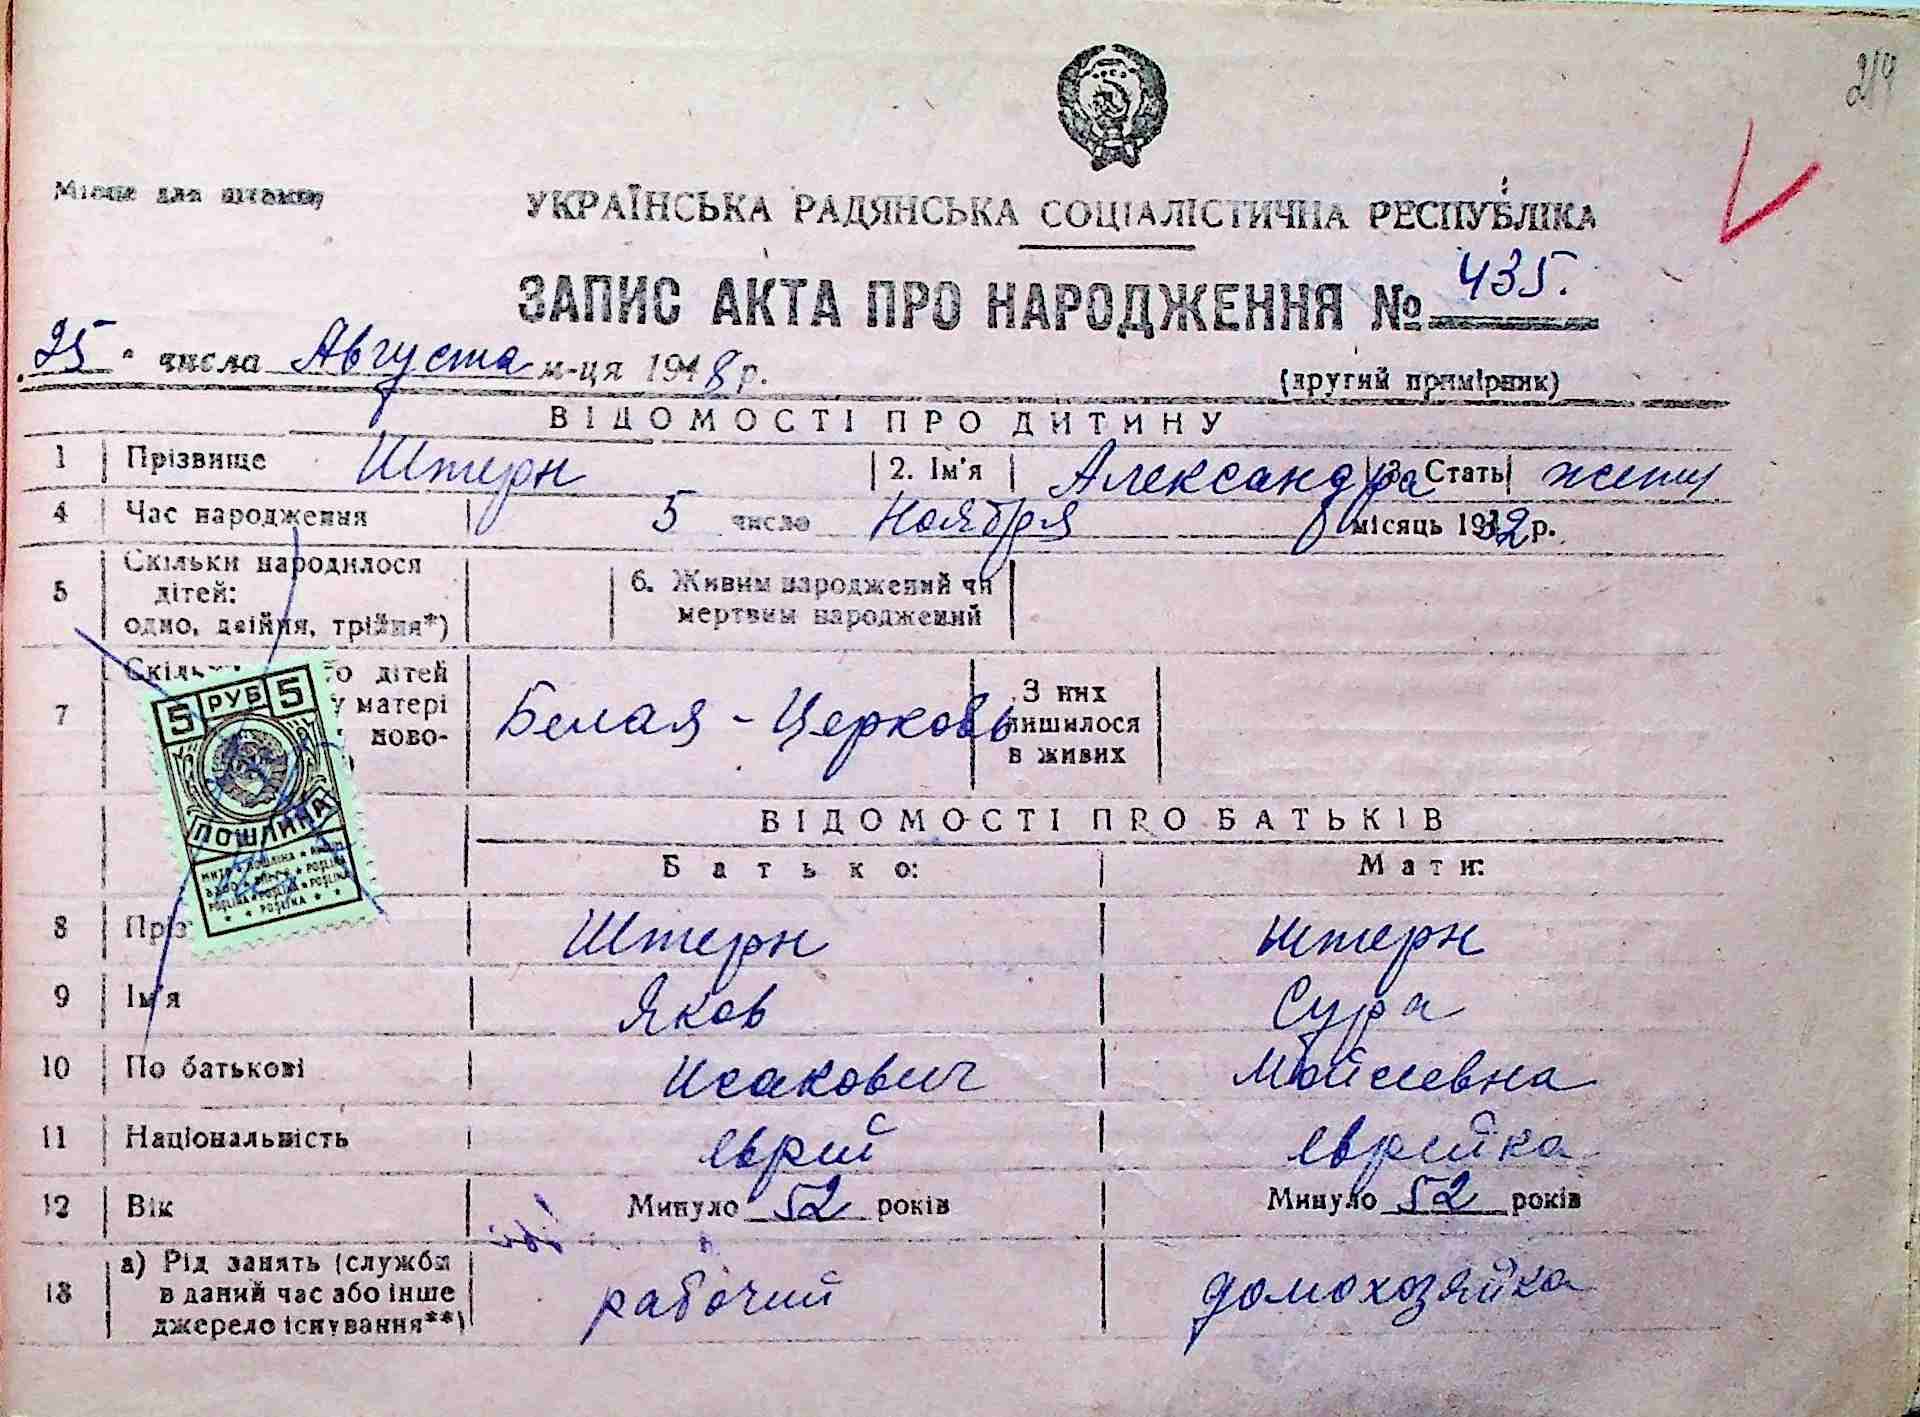 214
Місце для штампу
УКРАЇНСЬКА РАДЯНСЬКА СОЦІАЛІСТИЧНА РЕСПУБЛІКА
ЗАПИС АКТА ПРО НАРОДЖЕННЯ № 435.
25 числа Августа м-ця 1948 р.
(другий примірник)
ВІДОМОСТІ ПРО ДИТИНУ
1 Прізвище Штерн 2. Ім'я Александра 3. Стать женщ
4 Час народження 5 число Ноября місяць 1932 р.
5 Скільки народилося
дітей:
одно, двійня, трійня*)
6. Живим народжений чи
мертвим народжений
7 дітей
матері
ново-
Белая-Церковь
З них
лишилося
в живих
5 РУБ 5
ПОШЛИНА
ВІДОМОСТІ ПРО БАТЬКІВ
Батько: Мати:
8 Пріз Штерн Штерн
9 Ім'я Яков Сура
10 По батькові Исакович Мойсеевна
11 Національність еврей еврейка
12 Вік Минуло 52 років Минуло 52 років
13 а) Рід занять (служби
в даний час або інше
джерело існування**)
рабочий домохозяйка